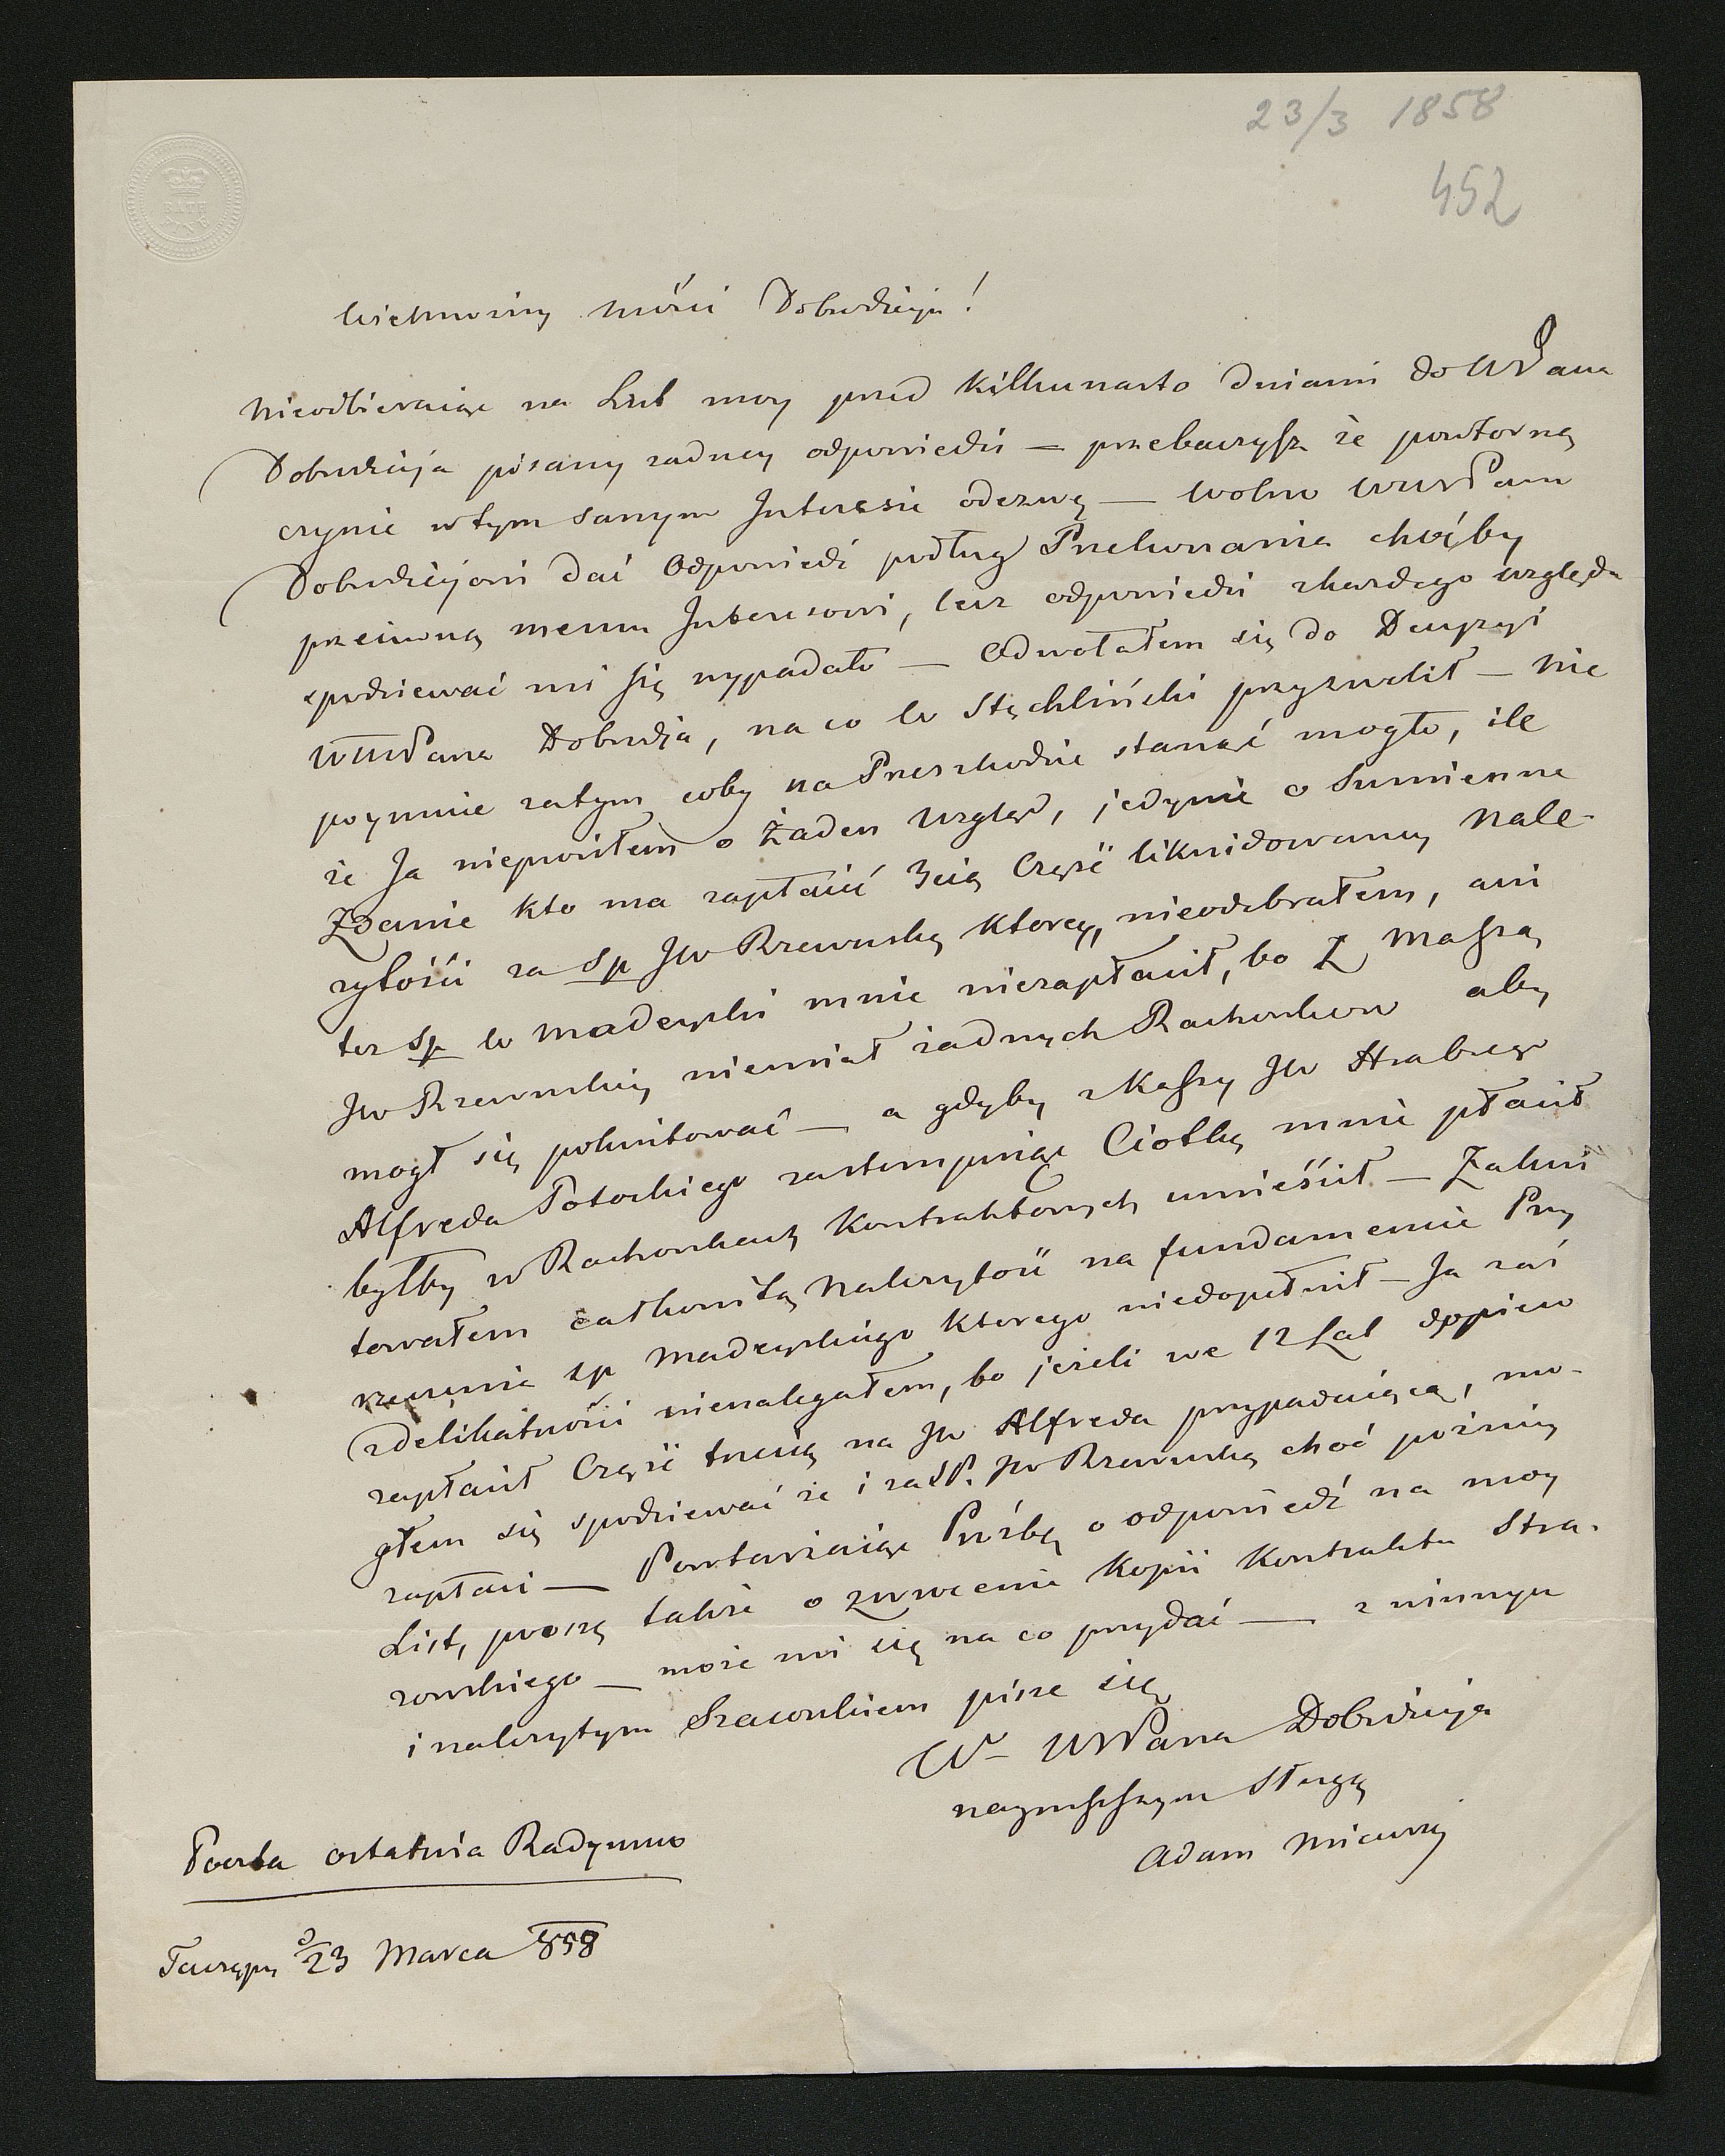 23/3 1858
452
BATH
Wielmożny Mości Dobrodzieju!
Nieodbieraiąc na List moy przed kilkunasto dniami do WWPana
Dobrodzieja pisany żadney odpowiedzi — przebaczysz że powtorną
czynie w tym samym Interesie odezwę — wolno WWPanu
Dobrodziejowi dać Odpowiedź podług Przekonania choćby
przeciwną memu Interesowi, lecz odpowiedzi z każdego względu
spodziewać mi się wypadało — Odwołałem się do Decyzyi
WWPana Dobrodzja, na co W Stęchliński przyzwolił — nie
poymuie zatym coby na Przeszkodzie stanąć mogło, ile
że Ja nieprosiłem o żaden Wzgląd, jedynie o Sumienne
Zdanie kto ma zapłacić 3cią Część likwidowaney Nale-
zytości za Sp JW Rzewuską ktorey, nieodebrałem, ani
też Sp W Madeyski mnie niezapłacił, bo Z Massą
JW Rzewuskiey niemiał żadnych Rachunkow aby
mogł się pokwitować — a gdyby z Kassy JW Hrabiego
Alfreda Potockiego zastempuiąc Ciotkę mnie płacił
byłby w Rachonkach Kontraktowych umieścił — Zakwi
towałem całkowitą Należytość na fundamencie Przy
rzeczenia sp Madeyskiego ktorego niedopełnił — Ja zaś
z delikatności nienalegałem, bo jeżeli we 12 Lat dopiero
zapłacił Część trzecią na JW Alfreda przypadaiącą, mo-
głem się spodziewać że i za SP. JW Rzewuską choć poźniey
zapłaci — Powtarzaiąc Prośbę o odpowiedź na moy
List, proszę także o zwrocenie Kopii Kontraktu Stra-
zowskiego — może mi się na co przydać — z winnym
i należytym Szacunkiem pisze się
W WWPana Dobrodzieja
nayniższym Sługą
Adam
Poczta ostatnia Radymno
d/23 Marca 858